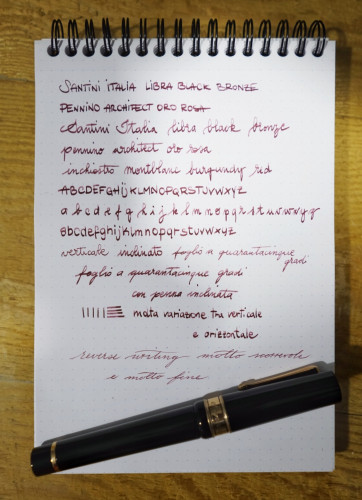 SANTINI ITALIA LIBRA BLACK BRONZE
PENNINO ARCHITECT ORO ROSA
Santini Italia libra black bronze
pennino architect oro rosa
inchiostro montblanc burgundy red
ABCDEFGHIJKLMNOPQRSTUVWXYZ
a b c d e f g h i j k l m n o p q r s t u v w x y z
abcdefghijklmnopqrstuvwxyz
verticale inclinato foglio a quarantacinque
gradi
foglio a quarantacinque gradi
con penna inclinata
molta variazione tra verticale
e orizzontale
reverse writing molto scorrevole
e molto fine